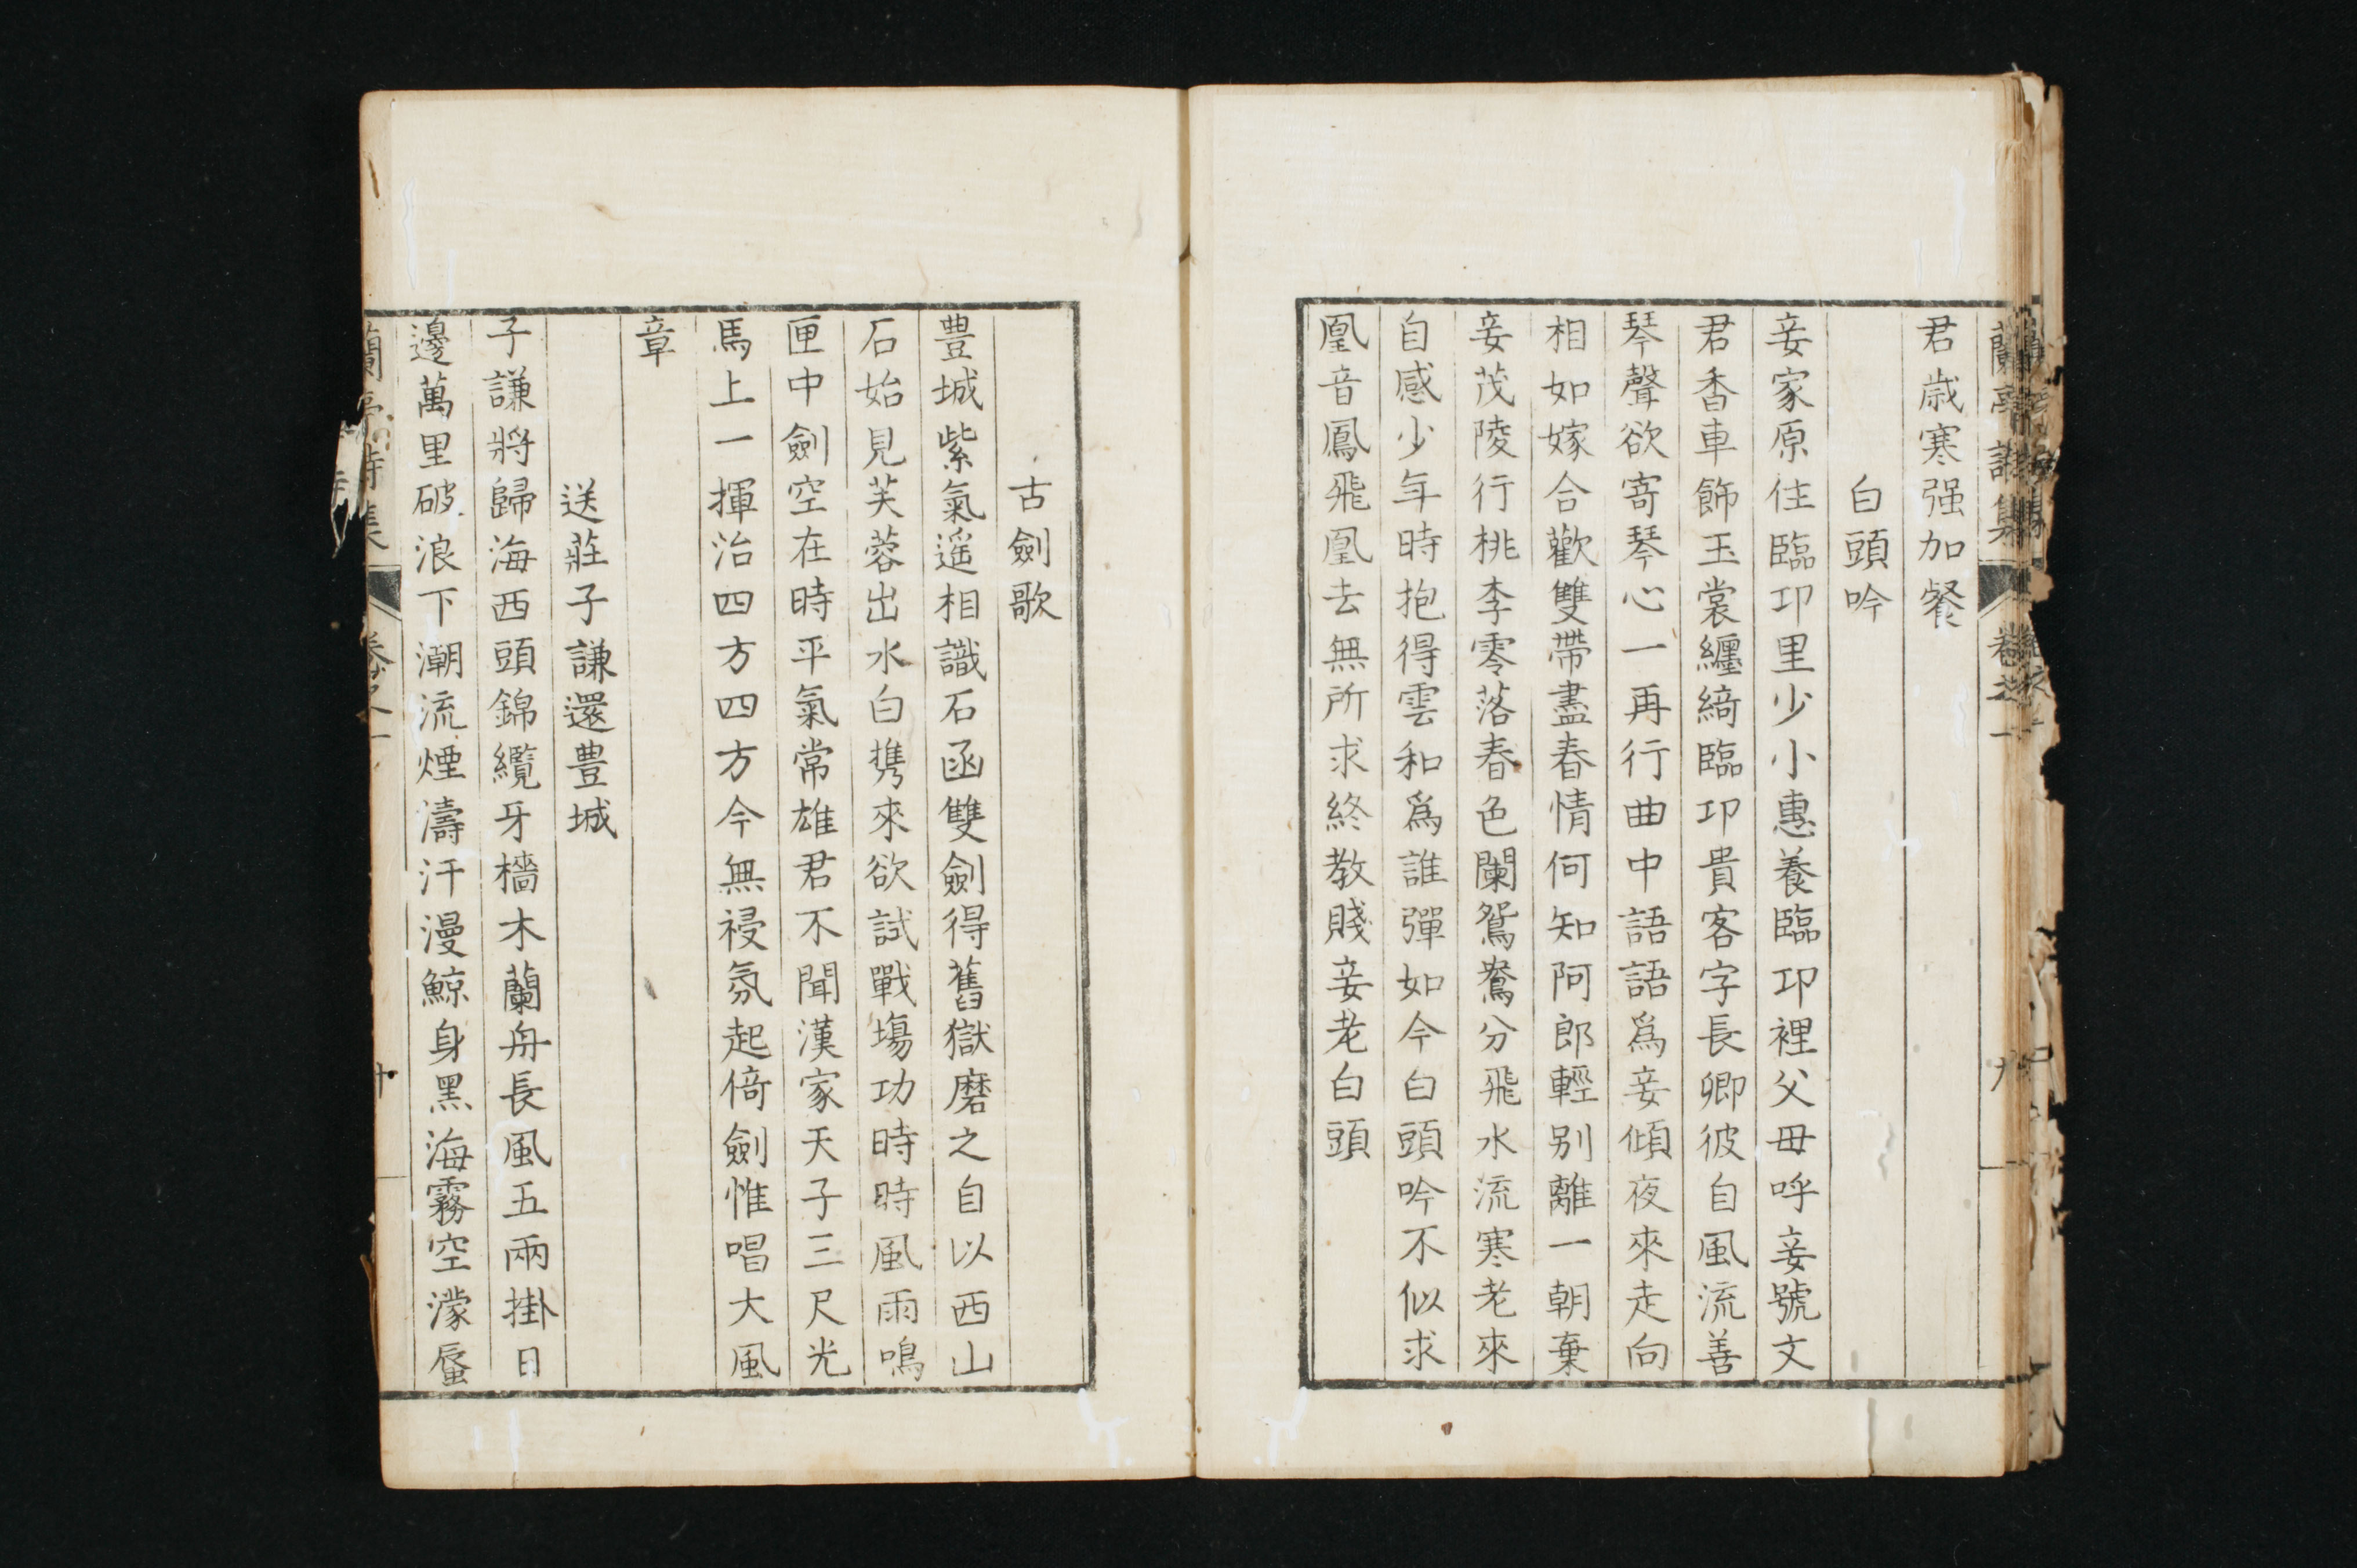 蘭亭詩集 卷之一 九
君歲寒强加餐
白頭吟
妾家原住臨邛里少小惠養臨邛裡父母呼妾號文
君香車飾玉裳纏綺臨邛貴客字長卿彼自風流善
琴聲欲寄琴心一再行曲中語語爲妾傾夜來走向
相如嫁合歡雙帶盡春情何知阿郎輕别離一朝棄
妾茂陵行桃李零落春色闌鴛鴦分飛水流寒老來
自感少年時抱得雲和爲誰彈如今白頭吟不似求
凰音鳳飛凰去無所求終教賤妾老白頭
古劍歌
豊城紫氣遙相識石函雙劍得舊獄磨之自以西山
石始見芙蓉出水白携來欲試戰場功時時風雨鳴
匣中劍空在時平氣常雄君不聞漢家天子三尺光
馬上一揮治四方四方今無祲氛起倚劍惟唱大風
章
送莊子謙還豊城
子謙將歸海西頭錦纜牙檣木蘭舟長風五兩掛日
邊萬里破浪下潮流煙濤汗漫鯨身黑海霧空濛蜃
蘭亭詩集 卷之一 十